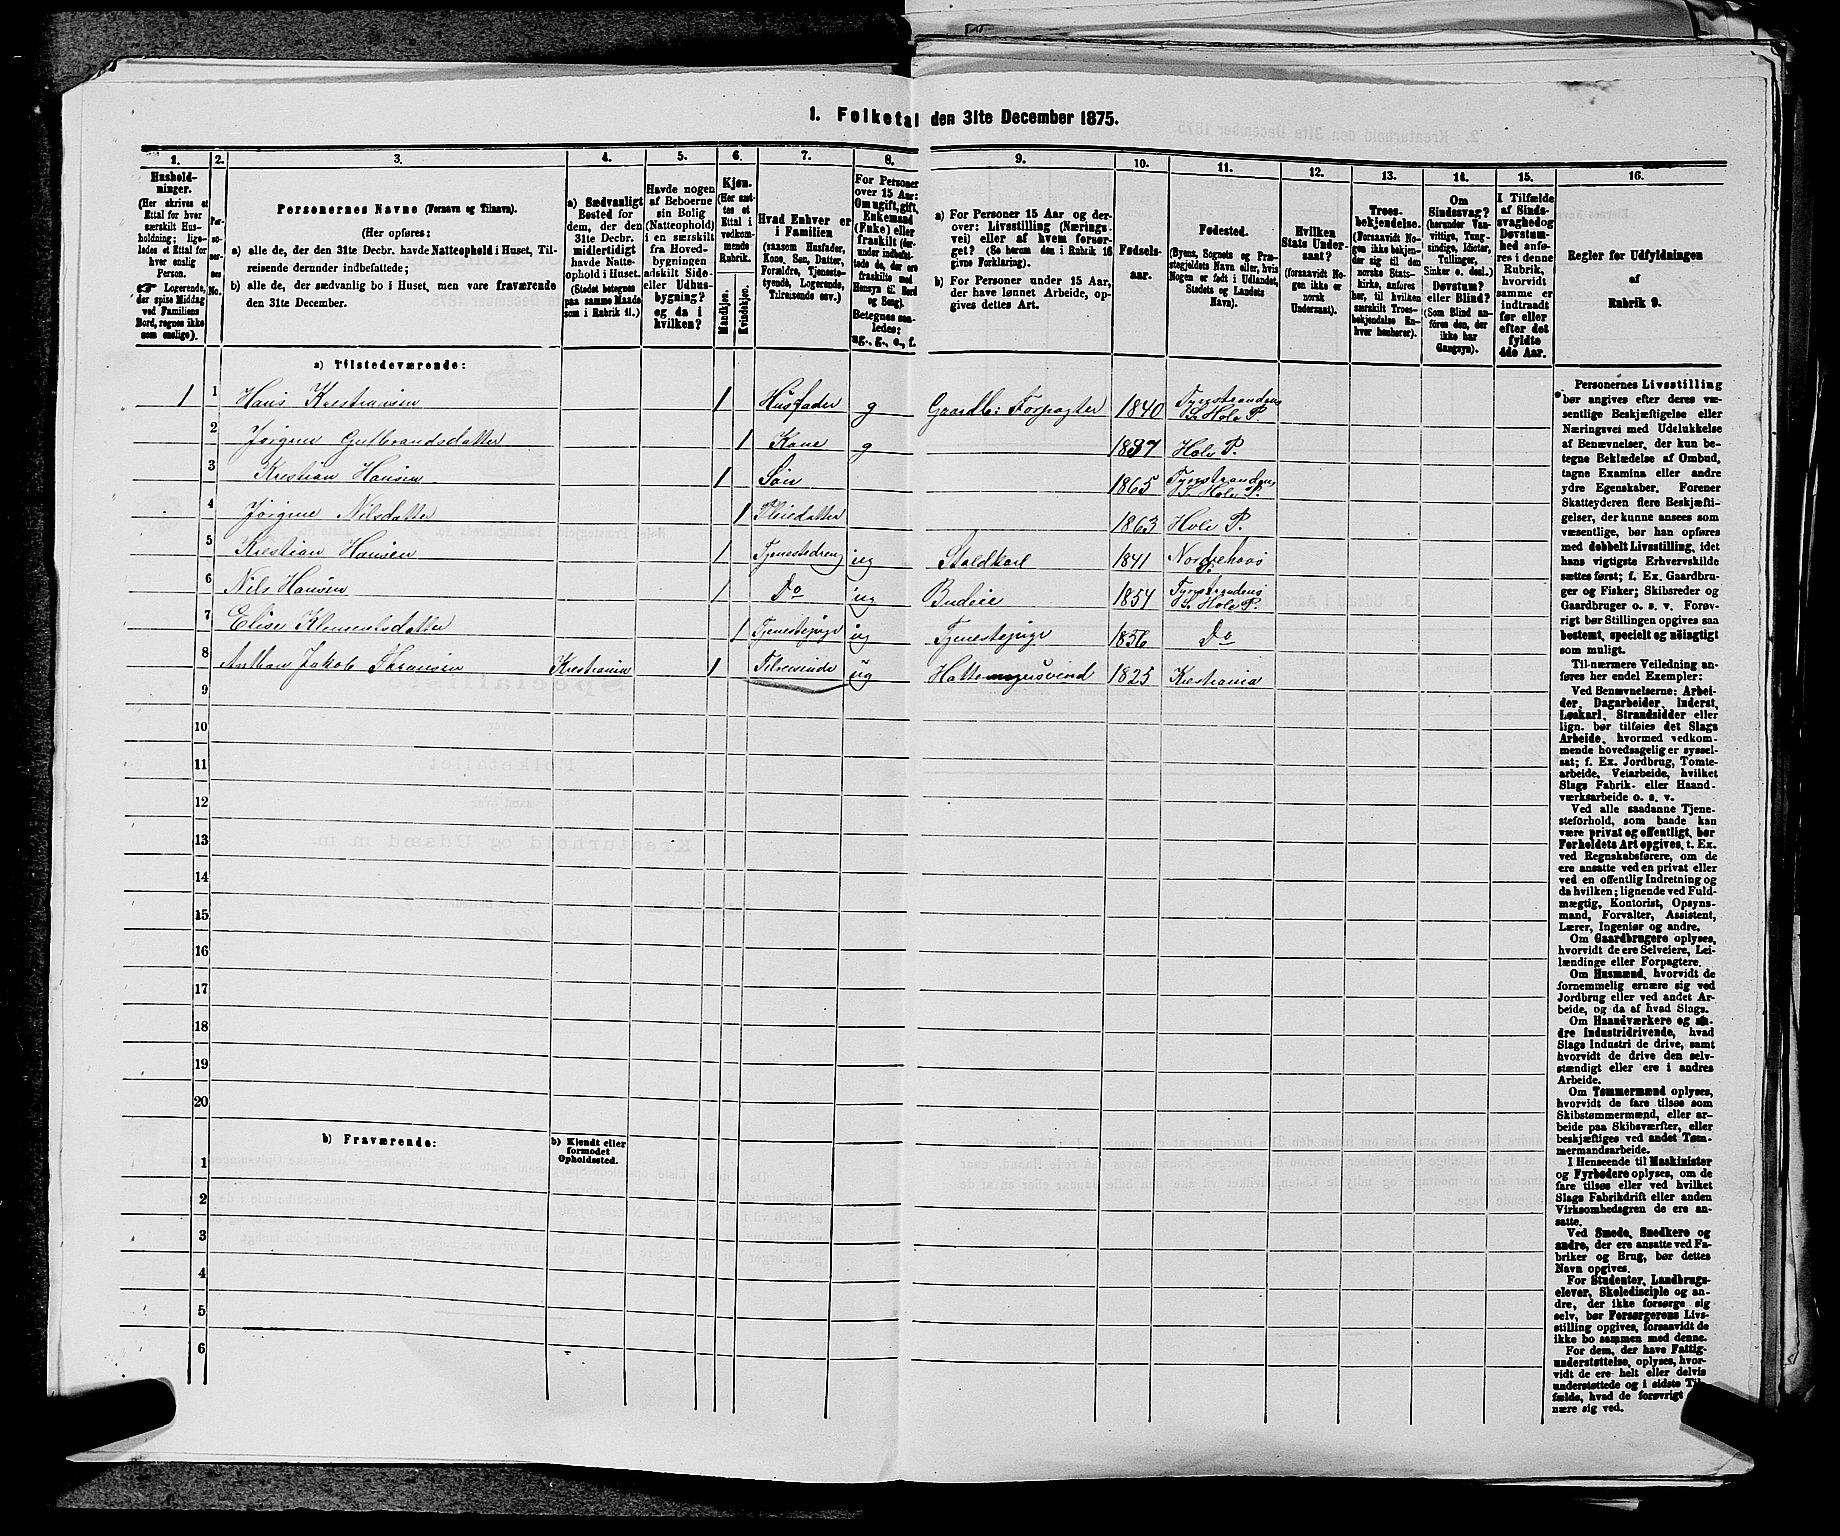 1. Folketal den 31te December 1875.
1. 2. 3. 4. 5. 6. 7. 8. 9. 10. 11. 12. 13. 14. 15. 16.
Hushold-
ninger.
(Her skrives et
Ettal for hver
særskilt Hus-
holdning; lige-
ledes et Ettal for
hver enslig
Person.
Logerende,
der spise Middag
ved Familiens
Bord, regnes ikke
som enslige).
Per-
so-
ner-
nes
No.
Personernes Navne (Fornavn og Tilnavn).
(Her opføres:
a) alle de, der den 31te Decbr. havde Natteophold i Huset, Til-
reisende derunder indbefattede;
b) alle de, der sædvanlig bo i Huset, men vare fraværende
den 31te December.
a) Sædvanligt
Bosted for
dem, der den
31te Decbr.
midlertidigt
havde Natte-
ophold i Huset.
(Stedet betegnes
paa samme Maade
som i Rubrik 11.)
Havde nogen
af Beboerne
sin Bolig
(Natteophold)
i en særskilt
fra Hoved-
bygningen
adskilt Side-
eller Udhus-
bygning?
og da i
hvilken?
Kjøn.
(Her sæt-
tes et
Ettal i
vedkom-
mende
Rubrik.
Mandkjøn.
Kvindekjøn.
Hvad Enhver er
i Familien
(saasom Husfader,
Kone, Søn, Datter,
Forældre, Tjeneste-
tyende, Logerende,
Tilreisende osv.)
For Personer
over 15 Aar:
Om ugift, gift,
Enkemand
(Enke) eller
fraskilt (der-
under indbefat-
tede de, der ere
fraskilte med
Hensyn til Bord
og Seng).
Betegnes saa-
ledes:
ug., g., e., f.
a) For Personer 15 Aar og der-
over: Livsstilling (Nærings-
vei) eller af hvem forsør-
get? (Se herom den i Rubrik 16
givne Forklaring).
b) For Personer under 15 Aar,
der have lønnet Arbeide, op-
gives dettes Art.
Fødsels-
aar.
Fødested.
(Byens, Sognets og Præ-
stegjeldets Navn eller, hvis
Nogen er født i Udlandet,
Stedets og Landets
Navn).
Hvilken
Stats Under-
saat?
(forsaavidt No-
gen ikke er
norsk
Undersaat).
Troes-
bekjendelse.
(Forsaavidt No-
gen ikke bekjen-
der sig til den
norske Stats-
kirke, anføres
her, til hvilken
særskilt Troes-
bekjendelse En-
hver henhører).
Om
Sindssvag?
(herunder Van-
vittige, Tung-
sindige, Idioter,
Tullinger,
Sinker o. desl.)
Døvstum?
eller Blind?
(Som Blind an-
føres den, der
ikke har
Gangsyn).
I Tilfælde
af Sinds-
svaghed og
Døvstum-
hed anfø-
res i denne
Rubrik,
hvorvidt
samme er
indtraadt
før eller
efter det
fyldte
4de Aar.
Regler for Udfyldningen
af
Rubrik 9.
a) Tilstedeværende:
1 1 Hans Kristiansen 1 Husfader g Gaardb: Forpagter 1840 Tyrstrandens S. Hole P.
2 Jørgine Gulbrandsdatter 1 Kone g 1837 Hole P.
3 Kristian Hansen 1 Søn 1865 Tyrstrandens S. Hole P.
4 Jørgine Nilsdatter 1 Pleiedatter 1863 Hole P.
5 Kristian Hansen 1 Tjenestedreng ug Staldkarl 1841 Norderhovs P.
6 Nils Hansen 1 Do ug Budeie 1854 Tyrstrandens S. Hole P.
7 Elise Klemetsdatter 1 Tjenestepige ug Tjenestepige 1856 Do
8 Anthon Jakob Kristiania 1 Tilreisende ug 1825 Kristiania
9
10
11
12
13
14
15
16
17
18
19
20
b) Fraværende:
b) Kjendt eller
formodet
Opholdssted.
1
2
3
4
5
6
Personernes Livsstilling
bør angives efter deres væ-
sentlige Beskjæftigelse eller
Næringsvei med Udelukkelse
af Benævnelser, der kun be-
tegne Beklædelse af Ombud,
tagne Examina eller andre
ydre Egenskaber. Forener
Skatteyderen flere Beskjæfti-
gelser, der kunne ansees som
væsentlige, bør han opføres
med dobbelt Livsstilling, idet
hans vigtigste Erhvervskilde
sættes først; f. Ex. Gaardbru-
ger og Fisker; Skibsreder og
Gaardbruger o. s. v. Forøv-
rigt bør Stillingen opgives saa
bestemt, specielt og nøiagtigt
som muligt.
Til nærmere Veiledning an-
føres her endel Exempler:
Ved Benævnelserne: Arbei-
der, Dagarbeider, Inderst,
Løskarl, Strandsidder eller
lign. bør tilføies det Slags
Arbeide, hvormed vedkom-
mende hovedsagelig er syssel-
sat; f. Ex. Jordbrug, Tomte-
arbeide, Veiarbeide, hvilket
Slags Fabrik- eller Haand-
værksarbeide o. s. v.
Ved alle saadanne Tjene-
steforhold, som baade kan
være privat og offentligt, bør
Forholdets Art opgives, t. Ex.
ved Regnskabsførere, om de
ere ansatte ved en privat eller
ved en offentlig Indretning og
da hvilken; lignende ved Fuld-
mægtig, Kontorist, Opsyns-
mand, Forvalter, Assistent,
Lærer, Ingeniør og andre.
Om Gaardbrugere oplyses,
hvorvidt de ere Selveiere, Lei-
lændinge eller Forpagtere.
Om Husmænd, hvorvidt de
fornemmelig ernære sig ved
Jordbrug eller ved andet Ar-
beide, og da af hvad Slags.
Om Haandværkere og an-
dre Industridrivende, hvad
Slags Industri de drive, samt
hvorvidt de drive den selv-
stændigt eller ere i andres
Arbeide.
Om Tømmermænd oplyses,
hvorvidt de fare tilsøs som
Skibstømmermænd, eller ar-
beide paa Skibsværfter, eller
beskjæftiges ved andet Tøm-
mermandsarbeide.
I Henseende til Maskinister
og Fyrbødere oplyses, om de
fare tilsøs eller ved hvilket
Slags Fabrikdrift eller anden
Virksomhedsgren de ere an-
satte.
Ved Smede, Snedkere og
andre, der ere ansatte ved Fa-
briker og Brug, bør dettes
Navn opgives.
For Studenter, Landbrugs-
elever, Skoledisciple og an-
dre, der ikke forsørge sig
selv, bør Forsørgerens Livs-
stilling opgives, forsaavidt de
ikke bo sammen med denne.
For dem, der have Fattig-
understøttelse, oplyses, hvor-
vidt de ere helt eller delvis
understøttede og i sidste Til-
fælde, hvad de forøvrigt
nære sig ved.